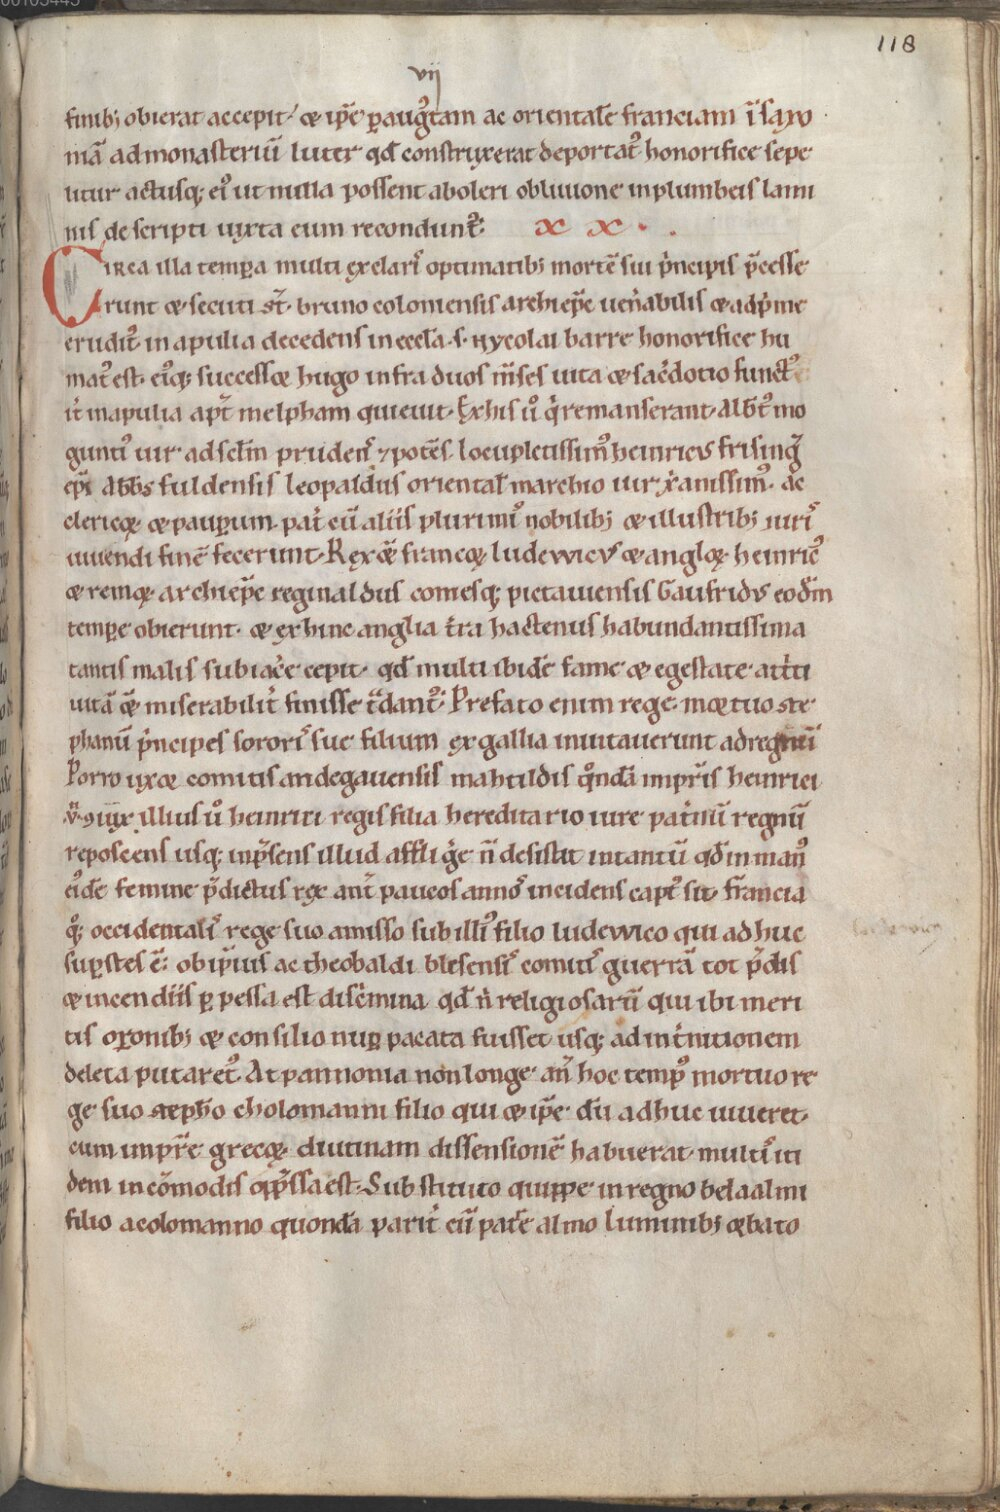 118
vij
finibꝫ obierat accepit. ⁊ ip̄e ꝑ augꝰtam ac orientalē franciam ī saxo
niā ad monasteriū luter qd̄ construxerat deportatꝰ honorifice sepe
litur actusqꝫ eiꝰ ut nulla possent aboleri obliuione in plumbeis lami
nis descripti iuxta eum reconduntꝰ. XX.
Circa illa tempora multi ex clarisˀ optimatibꝫ mortē sui p̄ncipis p̄cesse
runt ⁊ secuti st̄. bruno coloniensis archiep̄c uen̄abilis ⁊ adp̄me
eruditꝰ in apulia decedens in eccl̄a. s. nycolai barre honorifice hu
matꝰ est. eiꝰqꝫ successor hugo infra duos m̄ses uita ⁊ sac̄dotio functꝰ
it̄ in apulia apt̄ melpham quieuit. Ex his ů q̇ remanserant. Albtꝰ mo
guntiꝰ uir ad sclm̄ prudens ⁊ potēs. locupletissimꝰ heinricus frisinḡ
ep̄c Abbs fuldensis leopaldus oriental̄ marchio uir xp̄ianissimꝰ. ac
clericoꝝ ⁊ pauperum. pat̄ cū aliis plurimiˀ nobilibꝫ ⁊ illustribꝫ uiriˀ
uiuendi finē fecerunt. Rex q̄ꝫ francoꝝ ludewicus ⁊ angloꝝ heinricꝰ
⁊ remoꝝ archiep̄c reginaldus comesqꝫ pictauiensis Gaufridus eodm̄
tempore obierunt. ⁊ exhinc anglia t̄ra hactenus habundantissima
tantis malis subiac̄e cepit. qd̄ multi ibidē fame ⁊ egestate att̄ti
uitā q̄ꝫ miserabilit̄ finisse t̄dantꝰ. Prefato enim rege. mortuo ste
phanū p̄ncipes sororisˀ sue filium ex gallia inuitauerunt ad regnū
Porro uxor comitis andegauensis mahtildis qͦndā imprīs heinrici
.v̄. 9iux illius ů heinrici regis filia hereditario iure pat̄nū regnū
reposcens usqꝫ inp̄sens illud affliḡe n̄ desistit intantū qd̄ in manꝰ
eiꝰdē femine p̄dictus rex ant̄ paucos annosˀ incidens captꝰ sit. francia
qͦꝫ occidentalisˀ rege suo amisso sub illiꝰ filio ludewico qui adhuc
supstes ē. ob ip̄ius ac theobaldi blesensisˀ comitisˀ guerrā tot p̄dis
⁊ incendiis ꝑpessa est disc̄mina qd̄ n̄ religiosarū qui ibi meri
tis or̄onibꝫ ⁊ consilio nup pacata fuisset usqꝫ ad int̄nitionem
deleta putaretꝰ. At pannonia non longe an̄ hoc tempꝰ mortuo re
ge suo stepħo cholomanni filio qui ⁊ ip̄e dū adhuc uiueret.
cum impr̄e grecoꝝ. diutinam dissensionē habuerat. multisˀ iti
dem incōmodis opp̄ssa est. Substituto quippe in regno bela almi
filio a colomanno quondā parit̄ cū pat̄e almo luminibꝫ orbato